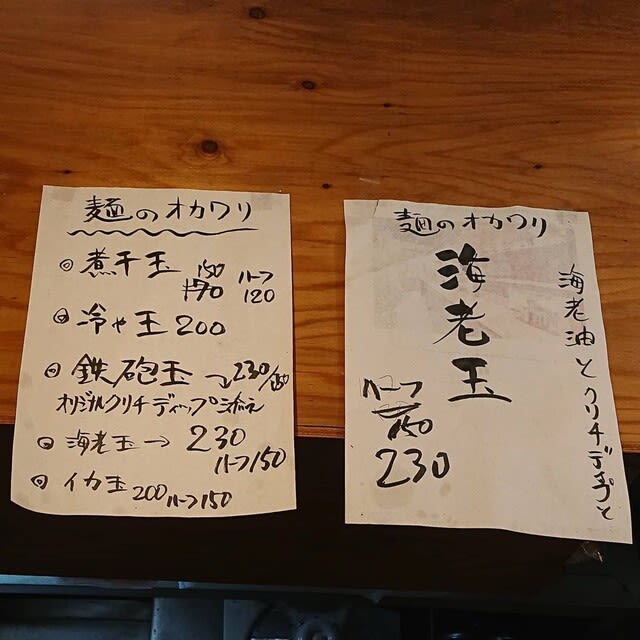 麺のオカワリ
◎煮干玉 150 170 ハーフ 120
◎冷や玉 200
◎鉄砲玉→230/150
オリジナルクリチディップ添え
◎海老玉→230
ハーフ150
◎イカ玉 200 ハーフ150
麺のオカワリ
海老玉
海老油とクリチディップと
ハーフ
150
230